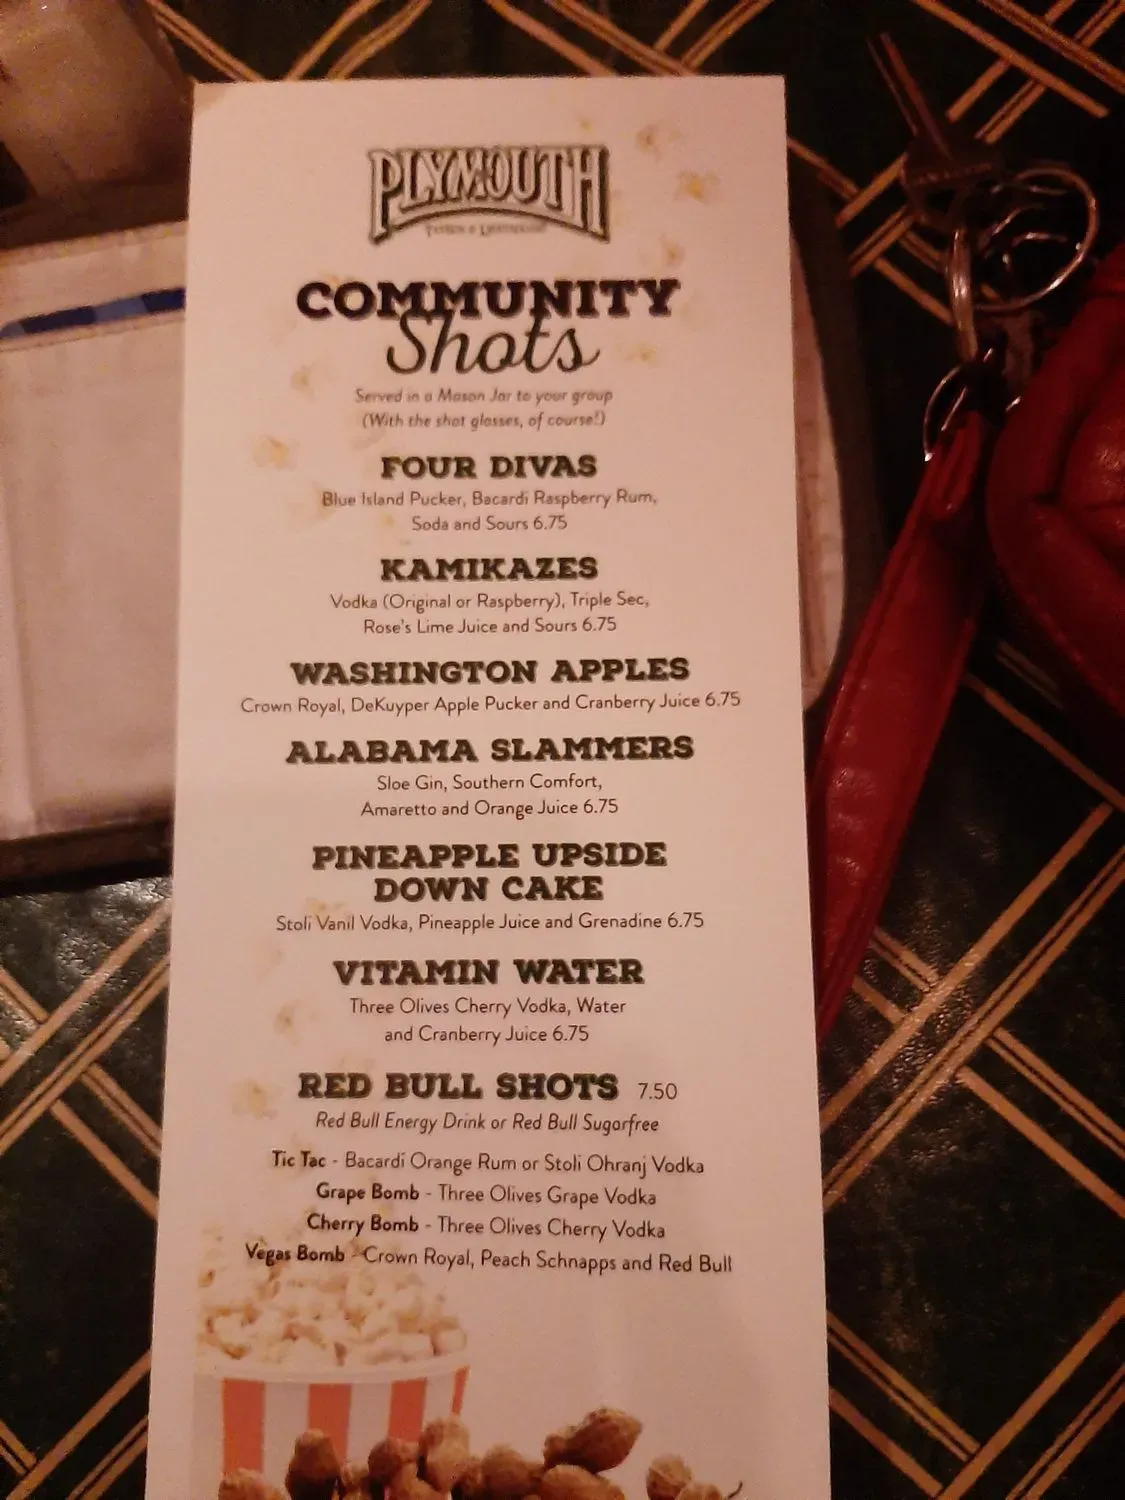 PLYMOUTH
COMMUNITY
Shots
Served in a Mason Jar to your group
(With the shot glasses, of course!)
FOUR DIVAS
Blue Island Pucker, Bacardi Raspberry Rum,
Soda and Sours 6.75
KAMIKAZES
Vodka (Original or Raspberry), Triple Sec,
Rose's Lime Juice and Sours 6.75
WASHINGTON APPLES
Crown Royal, DeKuyper Apple Pucker and Cranberry Juice 6.75
ALABAMA SLAMMERS
Sloe Gin, Southern Comfort,
Amaretto and Orange Juice 6.75
PINEAPPLE UPSIDE
DOWN CAKE
Stoli Vanil Vodka, Pineapple Juice and Grenadine 6.75
VITAMIN WATER
Three Olives Cherry Vodka, Water
and Cranberry Juice 6.75
RED BULL SHOTS 7.50
Red Bull Energy Drink or Red Bull Sugarfree
Tic Tac - Bacardi Orange Rum or Stoli Ohranj Vodka
Grape Bomb - Three Olives Grape Vodka
Cherry Bomb - Three Olives Cherry Vodka
Vegas Bomb - Crown Royal, Peach Schnapps and Red Bull